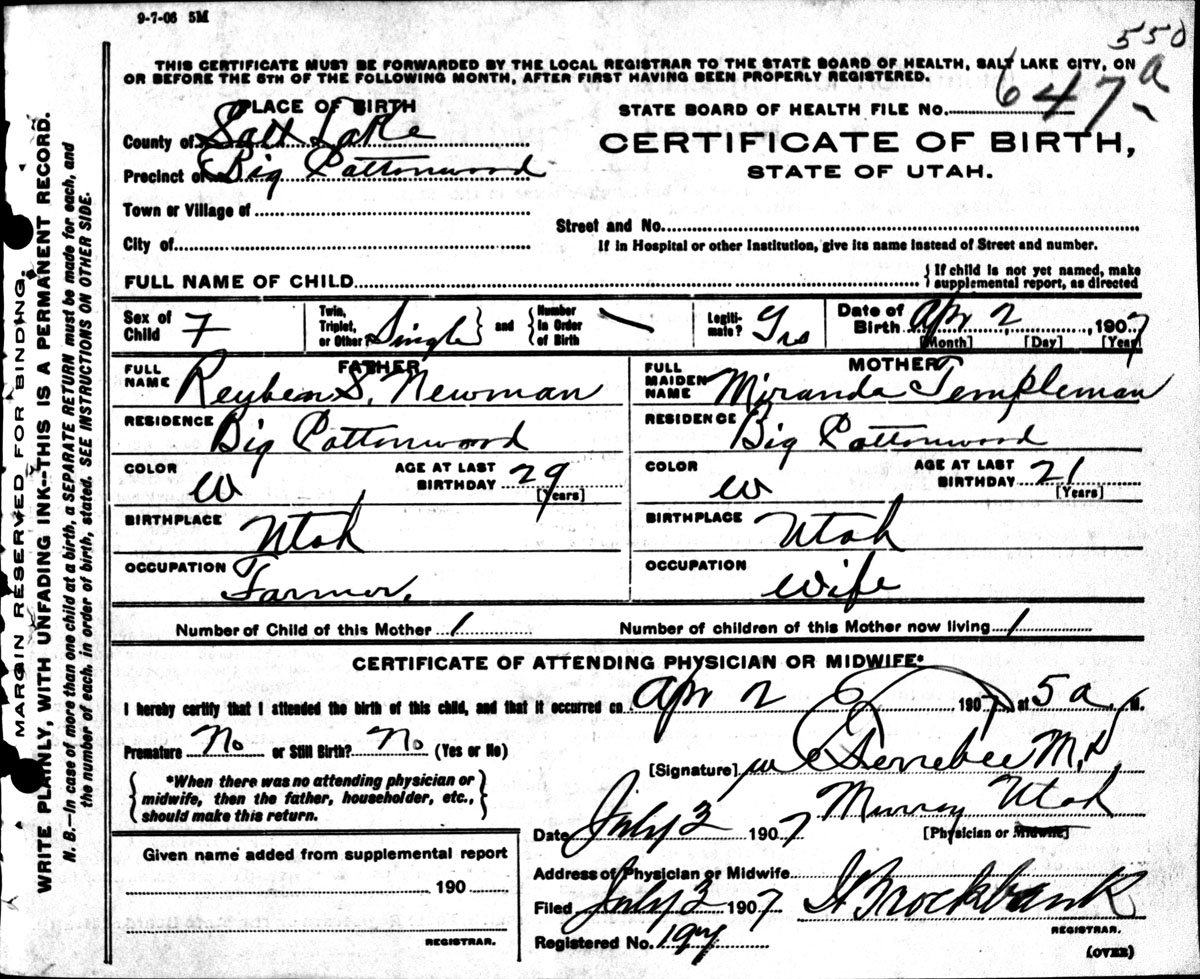 9-7-06 5M
550
THIS CERTIFICATE MUST BE FORWARDED BY THE LOCAL REGISTRAR TO THE STATE BOARD OF HEALTH, SALT LAKE CITY, ON
OR BEFORE THE 5TH OF THE FOLLOWING MONTH, AFTER FIRST HAVING BEEN PROPERLY REGISTERED.
PLACE OF BIRTH
STATE BOARD OF HEALTH FILE NO. 647 a
County of Salt Lake
CERTIFICATE OF BIRTH,
Precinct of Big Cottonwood
STATE OF UTAH.
Town or Village of
Street and No.
City of
If in Hospital or other Institution, give its name instead of Street and number.
FULL NAME OF CHILD
{If child is not yet named, make
supplemental report, as directed
Sex of Child F
Twin, Triplet, or Other? Single } and { Number in Order of Birth
Legitimate? Yes
Date of Birth Apr 2, 1907
[Month] [Day] [Year]
FATHER
FULL NAME Reyben S. Newman
MOTHER
FULL MAIDEN NAME Miranda Templeman
RESIDENCE Big Cottonwood
RESIDENCE Big Cottonwood
COLOR W AGE AT LAST BIRTHDAY 29 [Years]
COLOR W AGE AT LAST BIRTHDAY 21 [Years]
BIRTHPLACE Utah
BIRTHPLACE Utah
OCCUPATION Farmer.
OCCUPATION Wife
Number of Child of this Mother 1 Number of children of this Mother now living 1
CERTIFICATE OF ATTENDING PHYSICIAN OR MIDWIFE*
I hereby certify that I attended the birth of this child, and that it occurred on Apr 2 6 1907, at 5 a. M.
Premature No or Still Birth? No (Yes or No)
[Signature] M.D.
{*When there was no attending physician or
midwife, then the father, householder, etc.,
should make this return.}
Murray Utah
Date July 3 1907 [Physician or Midwife]
Given name added from supplemental report
190
REGISTRAR.
Address of Physician or Midwife
Filed July 3 1907 Brockbank
REGISTRAR.
Registered No. 197
(OVER)
MARGIN RESERVED FOR BINDING.
WRITE PLAINLY, WITH UNFADING INK--THIS IS A PERMANENT RECORD.
N. B.—In case of more than one child at a birth, a SEPARATE RETURN must be made for each, and
the number of each, in order of birth, stated. SEE INSTRUCTIONS ON OTHER SIDE.